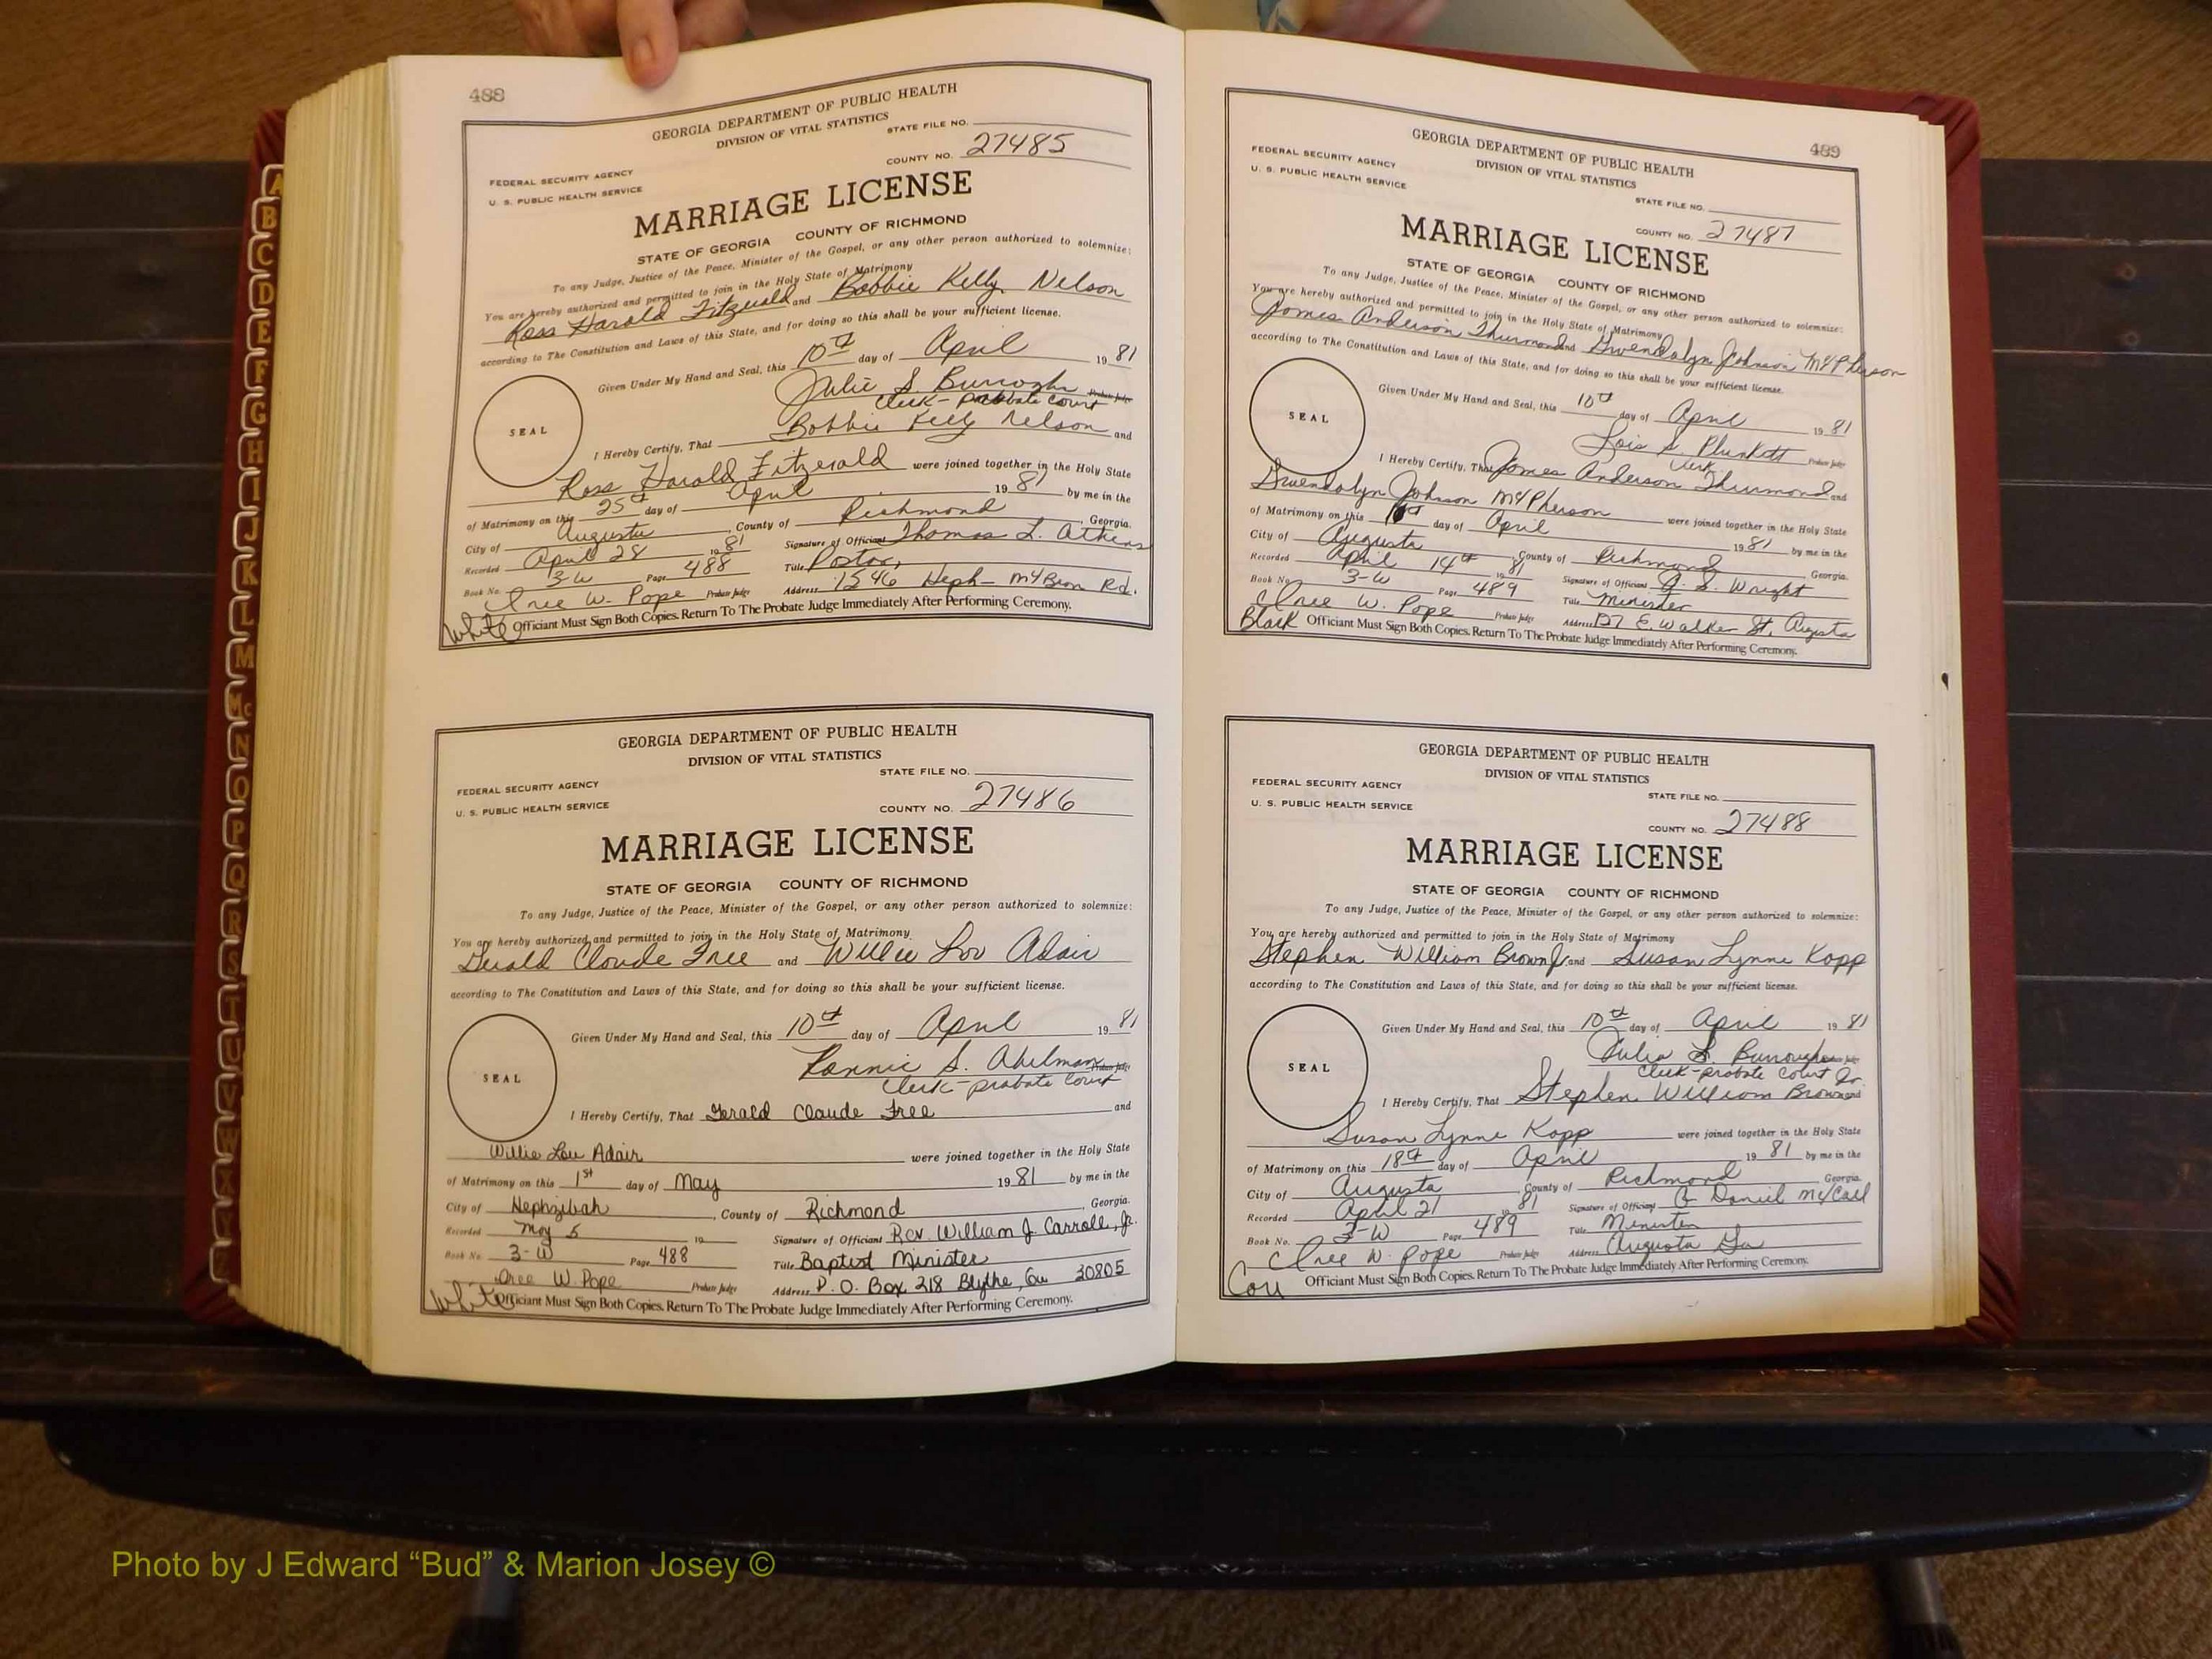 488
GEORGIA DEPARTMENT OF PUBLIC HEALTH
DIVISION OF VITAL STATISTICS
STATE FILE NO.
COUNTY NO. 27485
FEDERAL SECURITY AGENCY
U. S. PUBLIC HEALTH SERVICE
MARRIAGE LICENSE
STATE OF GEORGIA COUNTY OF RICHMOND
To any Judge, Justice of the Peace, Minister of the Gospel, or any other person authorized to solemnize:
You are hereby authorized and permitted to join in the Holy State of Matrimony
Ross Harold Fitzgerald and Bobbie Kelly Nelson
according to The Constitution and Laws of this State, and for doing so this shall be your sufficient license.
Given Under My Hand and Seal, this 10th day of April 1981
Julie S. Burroughs Probate Judge
Clerk - probate court
SEAL
I Hereby Certify, That Bobbie Kelly Nelson and
Ross Harold Fitzgerald were joined together in the Holy State
of Matrimony on this 25th day of April 1981 by me in the
City of Augusta, County of Richmond, Georgia.
Recorded April 28 1981 Signature of Officiant Thomas L. Atkins
Book No. 3-W Page 488 Title Pastor,
Cree W. Pope Probate Judge Address 1546 Heph-McBean Rd.
White Officiant Must Sign Both Copies. Return To The Probate Judge Immediately After Performing Ceremony.
GEORGIA DEPARTMENT OF PUBLIC HEALTH
DIVISION OF VITAL STATISTICS
STATE FILE NO.
FEDERAL SECURITY AGENCY
U. S. PUBLIC HEALTH SERVICE
COUNTY NO. 27486
MARRIAGE LICENSE
STATE OF GEORGIA COUNTY OF RICHMOND
To any Judge, Justice of the Peace, Minister of the Gospel, or any other person authorized to solemnize:
You are hereby authorized and permitted to join in the Holy State of Matrimony
Gerald Claude Free and Willie Lou Adair
according to The Constitution and Laws of this State, and for doing so this shall be your sufficient license.
Given Under My Hand and Seal, this 10th day of April 1981
S. Probate Judge
Clerk - probate Court
SEAL
I Hereby Certify, That Gerald Claude Free and
Willie Lou Adair were joined together in the Holy State
of Matrimony on this 1st day of May 1981 by me in the
City of Hephzibah, County of Richmond, Georgia.
Recorded May 5 19 Signature of Officiant Rev. William J. Carroll, Jr.
Book No. 3-W Page 488 Title Baptist Minister
Cree W. Pope Probate Judge Address P.O. Box 218 Blythe, Ga 30805
White Officiant Must Sign Both Copies. Return To The Probate Judge Immediately After Performing Ceremony.
489
GEORGIA DEPARTMENT OF PUBLIC HEALTH
DIVISION OF VITAL STATISTICS
FEDERAL SECURITY AGENCY
U. S. PUBLIC HEALTH SERVICE
STATE FILE NO.
COUNTY NO. 27487
MARRIAGE LICENSE
STATE OF GEORGIA COUNTY OF RICHMOND
To any Judge, Justice of the Peace, Minister of the Gospel, or any other person authorized to solemnize:
You are hereby authorized and permitted to join in the Holy State of Matrimony
James Anderson Thurmond and Gwendolyn Johnson McPherson
according to The Constitution and Laws of this State, and for doing so this shall be your sufficient license.
Given Under My Hand and Seal, this 10th day of April 1981
Lois S. Plunkett Probate Judge
Clerk
SEAL
I Hereby Certify, That James Anderson Thurmond and
Gwendolyn Johnson McPherson were joined together in the Holy State
of Matrimony on this day of April 1981 by me in the
City of Augusta, County of Richmond Georgia.
Recorded April 14th 1981 Signature of Officiant S. Wright
Book No. 3-W Page 489 Title Minister
Cree W. Pope Probate Judge Address E. Walker St, Augusta
Black Officiant Must Sign Both Copies. Return To The Probate Judge Immediately After Performing Ceremony.
GEORGIA DEPARTMENT OF PUBLIC HEALTH
DIVISION OF VITAL STATISTICS
FEDERAL SECURITY AGENCY
U. S. PUBLIC HEALTH SERVICE
STATE FILE NO.
COUNTY NO. 27488
MARRIAGE LICENSE
STATE OF GEORGIA COUNTY OF RICHMOND
To any Judge, Justice of the Peace, Minister of the Gospel, or any other person authorized to solemnize:
You are hereby authorized and permitted to join in the Holy State of Matrimony
Stephen William Brown Jr and Susan Lynne Kopp
according to The Constitution and Laws of this State, and for doing so this shall be your sufficient license.
Given Under My Hand and Seal, this 10th day of April 1981
Julia S. Burroughs Probate Judge
Clerk - probate Court Jr.
SEAL
I Hereby Certify, That Stephen William Brown and
Susan Lynne Kopp were joined together in the Holy State
of Matrimony on this 18th day of April 1981 by me in the
City of Augusta, County of Richmond Georgia.
Recorded April 21 1981 Signature of Officiant Daniel McCall
Book No. 3-W Page 489 Title Minister
Cree W. Pope Probate Judge Address Augusta Ga
Officiant Must Sign Both Copies. Return To The Probate Judge Immediately After Performing Ceremony.
A
B
C
D
E
F
G
H
I
J
K
L
M
Mc
N
O
P
Q
R
S
T
U
V
W
Photo by J Edward “Bud” & Marion Josey ©